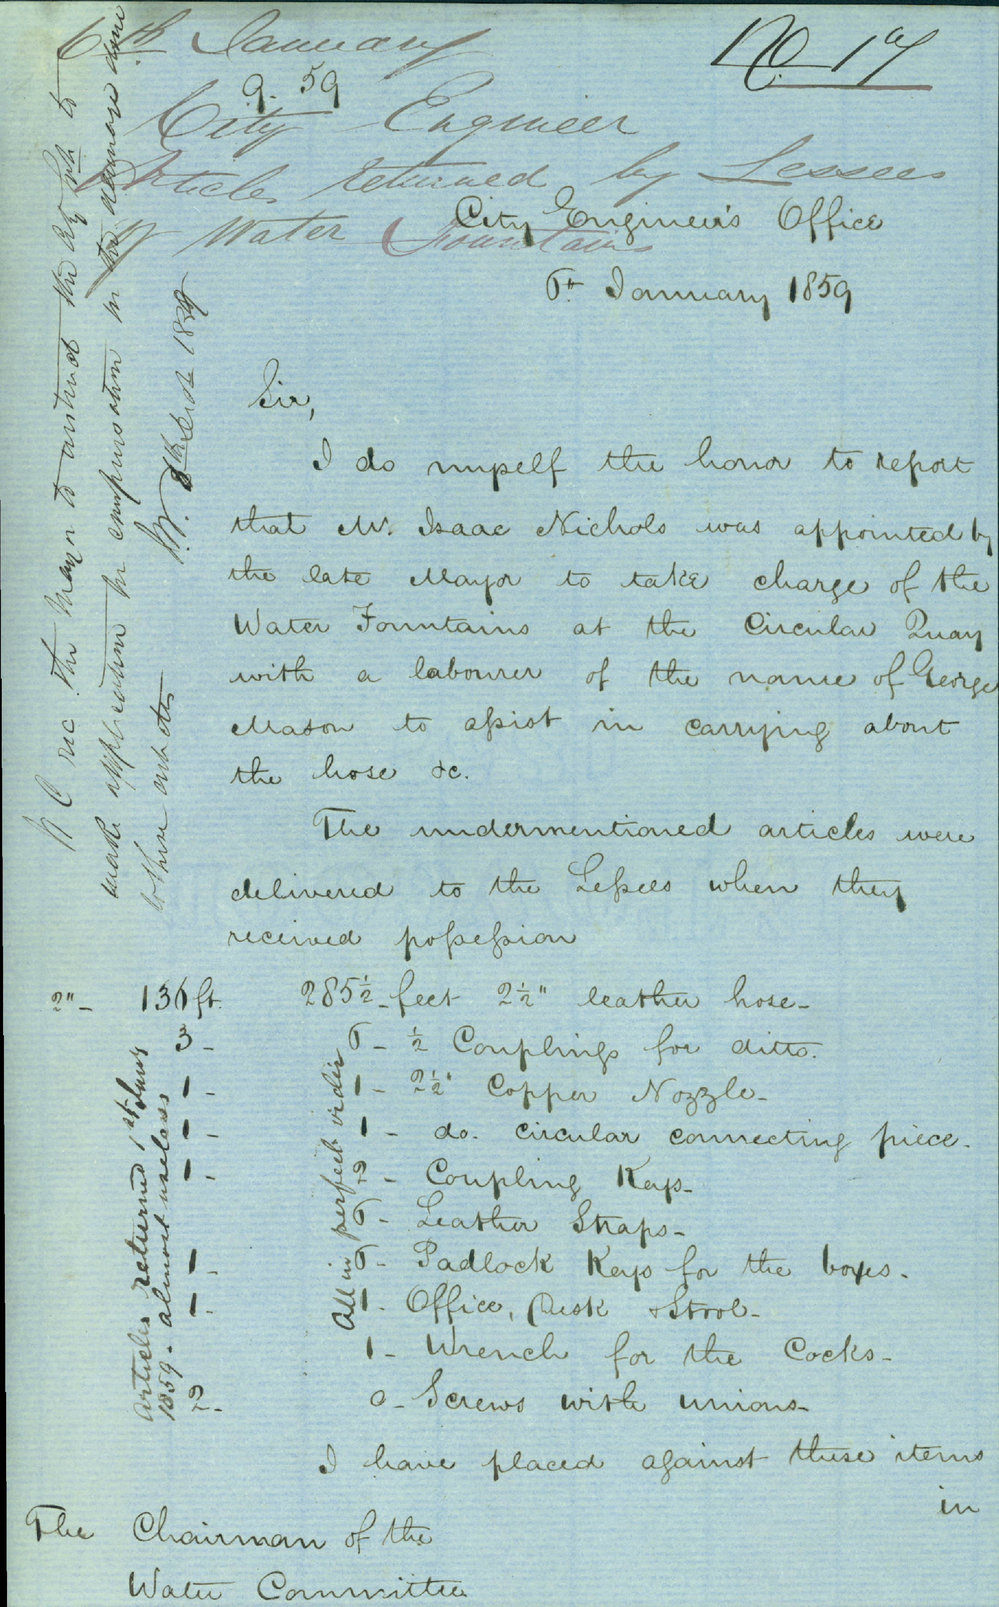 6th January
9. 59
No 17
City Engineer
Articles returned by Lessees
of Water Fountains
City Engineer's Office
6th January 1859
Sir,
I do myself the honor to report
that Mr. Isaac Nichols was appointed by
the late Mayor to take charge of the
Water Fountains at the Circular Quay
with a labourer of the name of George
Mason to assist in carrying about
the hose &c.
The undermentioned articles were
delivered to the Lessees when they
received possession
2" - 136 ft. 285½ - feet 2½" leather hose -
3 - 6 - ½ Couplings for ditto.
1 - 1 - 2½" Copper Nozzle -
1 - 1 - do. circular connecting piece.
1 - 2 - Coupling Keys -
6 - Leather Straps -
1 - 6 - Padlock Keys for the boxes.
1 - 1 - Office, Desk & Stool -
1 - Wrench for the Cocks -
2 - Screws with unions -
All in perfect order
Articles returned 1st Jany
1859 - almost useless
I have placed against these items
in
The Chairman of the
Water Committee
the Mayor to instruct the
make application for compensation for the damage done
to these articles
1859